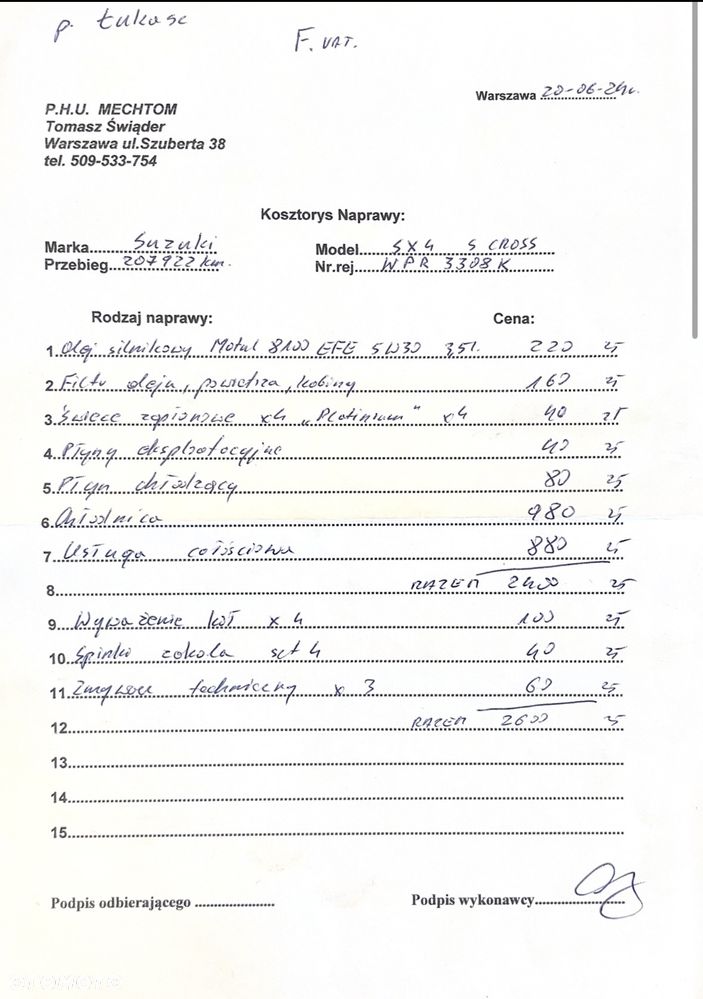 p. Łukasz
F. VAT.
Warszawa 20-06-24r.
P.H.U. MECHTOM
Tomasz Świąder
Warszawa ul.Szuberta 38
tel. 509-533-754
Kosztorys Naprawy:
Marka....Suzuki
Model....SX4 S CROSS
Przebieg..207922 km.
Nr.rej....WPR 3308K
Rodzaj naprawy: Cena:
1. Olej silnikowy Motul 8100 EFE 5W30 3,5l. 220 zł
2. Filtr oleju, powietrza, kabiny 160 zł
3. Świece zapłonowe x4 „Platinium" x4 40 zł
4. Płyny eksploatacyjne 40 zł
5. Płyn chłodzący 80 zł
6. Chłodnica 980 zł
7. Usługa całościowa 880 zł
8. RAZEM 2400 zł
9. Wyważenie kół x 4 100 zł
10. Spinki zakola szt 4 40 zł
11. Zmywacz techniczny x 3 60 zł
12. RAZEM 2600 zł
13.
14.
15.
Podpis odbierającego ....................
Podpis wykonawcy....................
OTOMOTO